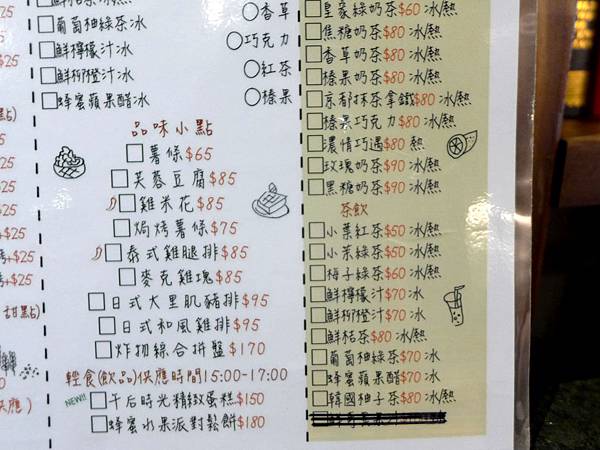 葡萄柚綠茶冰
鮮檸檬汁冰
鮮柳橙汁冰
蜂蜜蘋果醋冰
香草
巧克力
紅茶
榛果
品味小點
薯條$65
芙蓉豆腐$85
雞米花$85
焗烤薯條$75
泰式雞腿排$85
麥克雞塊$85
日式大里肌豬排$95
日式和風雞排$95
炸物綜合拼盤$170
輕食(飲品)供應時間15:00-17:00
NEW!! 午后時光精緻蛋糕$150
蜂蜜水果派對鬆餅$180
皇家綠奶茶$60 冰/熱
焦糖奶茶$80 冰/熱
香草奶茶$80 冰/熱
榛果奶茶$80 冰/熱
京都抹茶拿鐵$80 冰/熱
榛果巧克力$80 冰/熱
濃情巧遇$80 熱
玫瑰奶茶$90 冰/熱
黑糖奶茶$90 冰/熱
茶飲
小葉紅茶$50 冰/熱
小茉綠茶$50 冰/熱
梅子綠茶$60 冰/熱
鮮檸檬汁$70 冰
鮮柳橙汁$70 冰
鮮桔茶$80 冰/熱
葡萄柚綠茶$70 冰
蜂蜜蘋果醋$70 冰
韓國柚子茶$80 冰/熱
$25
點)
+$25
+$25
甜點)
供應)